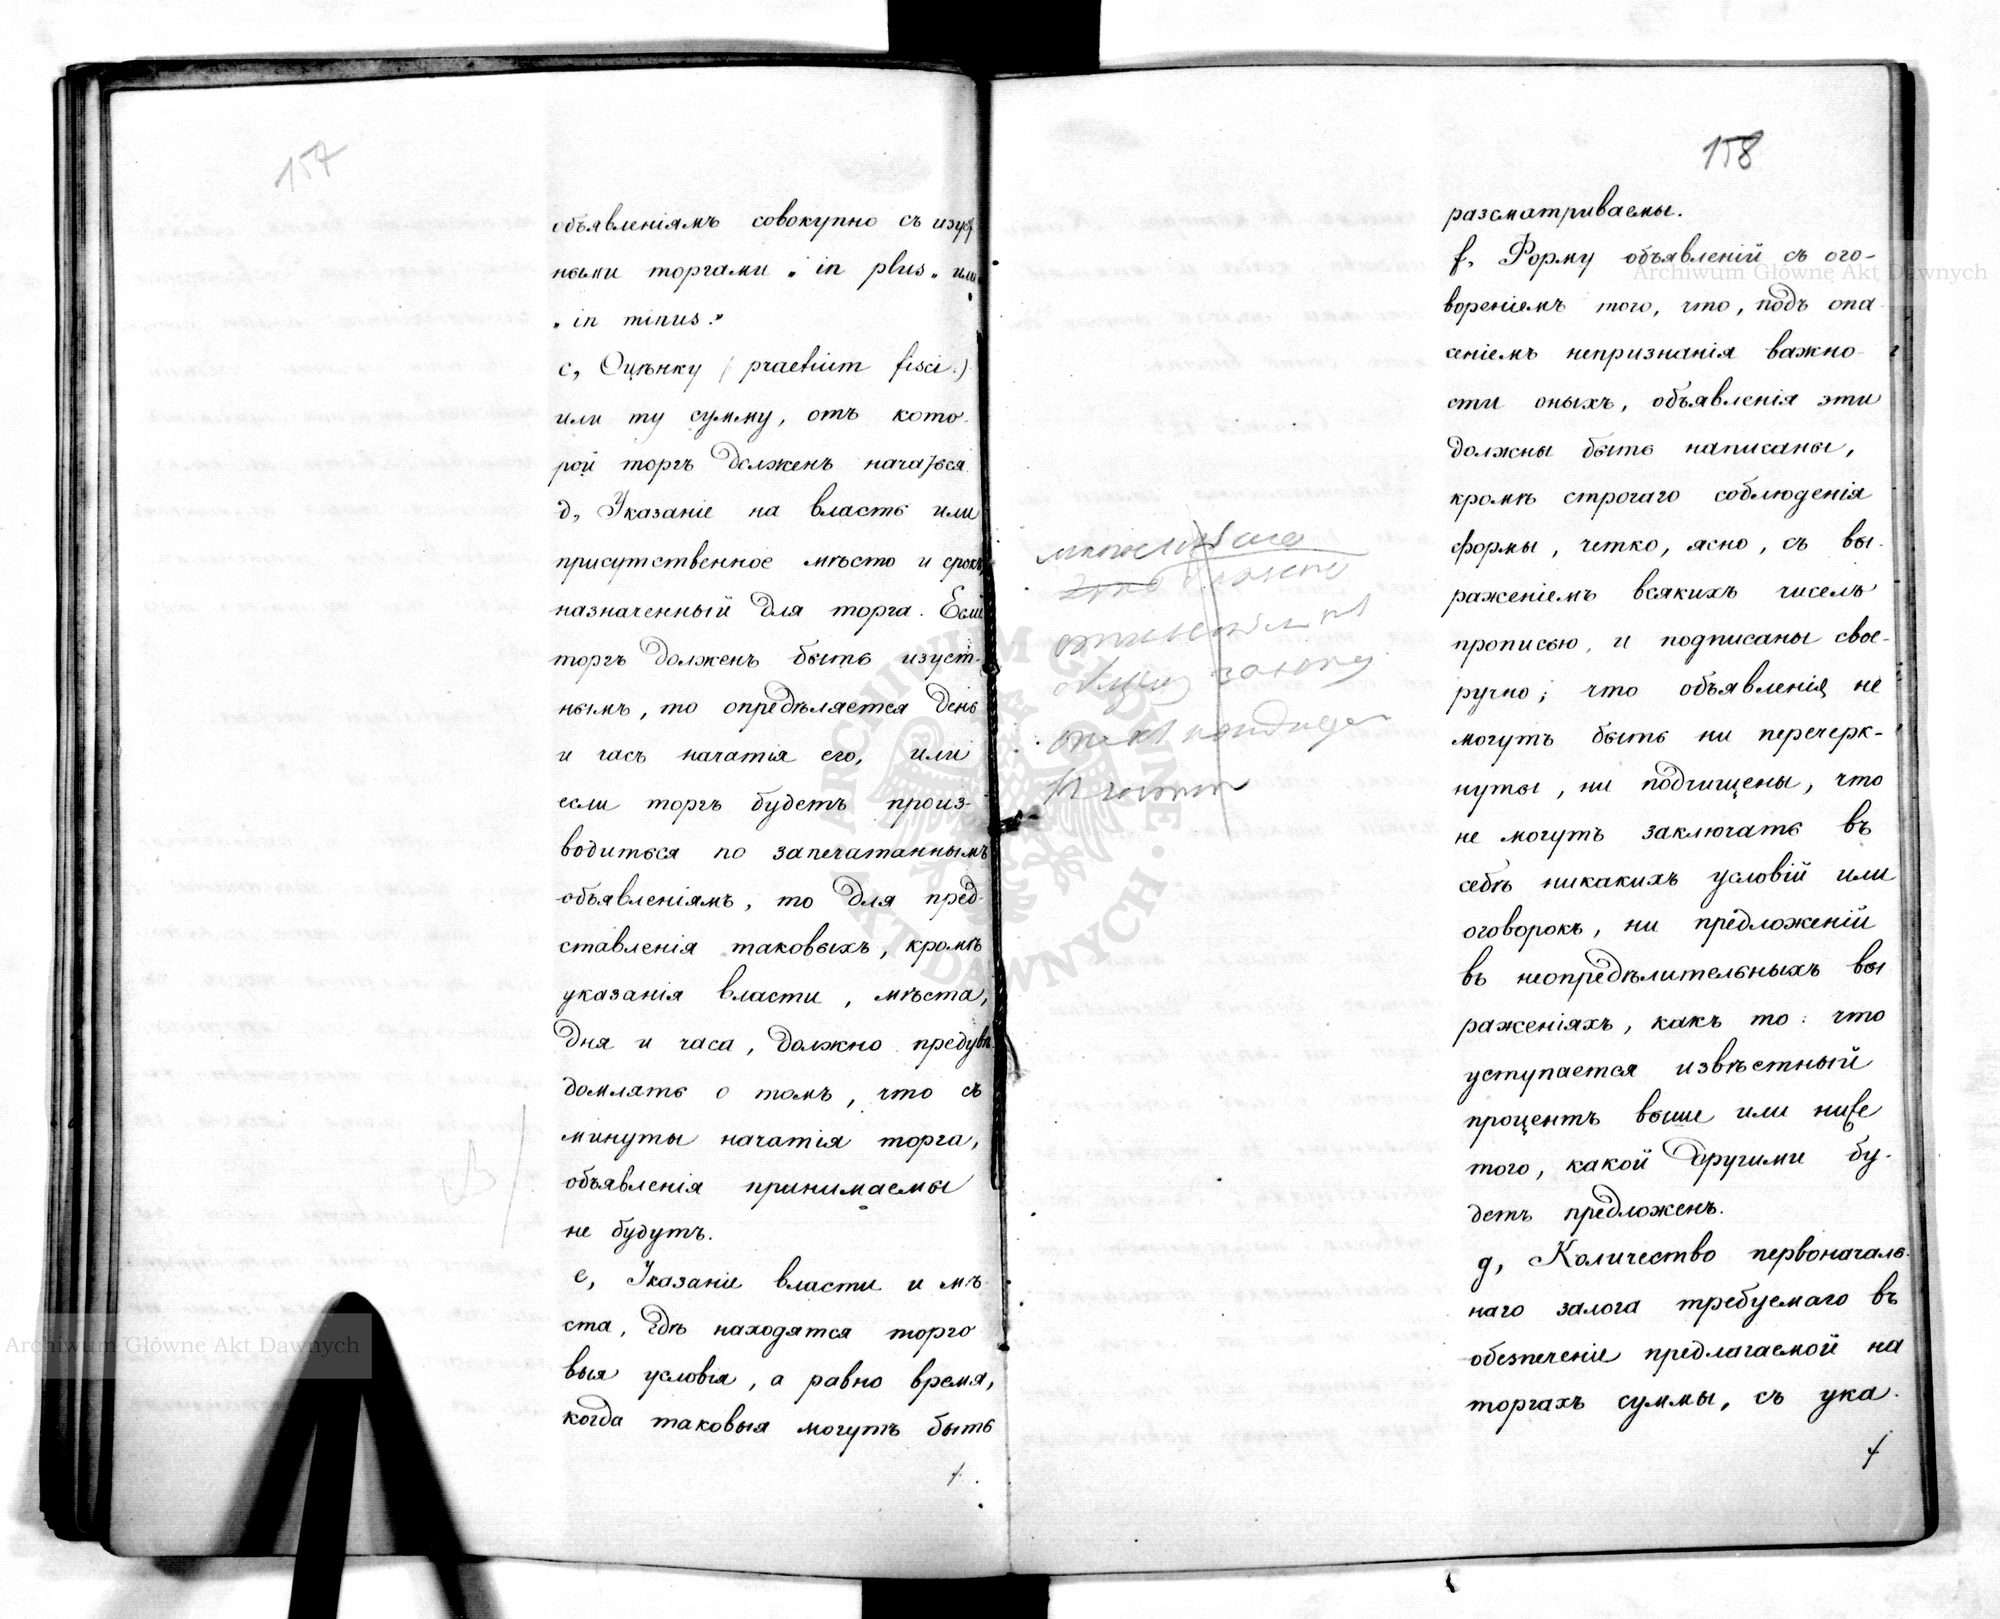 157
объявленіямъ совокупно съ изуст
ными торгами „ in plus „ или
„ in minus."
c, Оцѣнку ( praetium fisci.)
или ту сумму, отъ кото
рой торгъ долженъ начаться.
d, Указаніе на власть или
присутственное мѣсто и срокъ,
назначенный для торга. Если
торгъ долженъ быть изуст-
нымъ, то опредѣляется день
и часъ начатія его, или
если торгъ будетъ произ-
водиться по запечатаннымъ
объявленіямъ, то для пред-
ставленія таковыхъ, кромѣ
указанія власти, мѣста,
дня и часа, должно предувѣ
домлять о томъ, что съ
минуты начатія торга,
объявленія принимаемы
не будутъ.
e, Указаніе власти и мѣ-
ста, гдѣ находятся торго
выя условія, а равно время,
когда таковыя могутъ быть
158
разсматриваемы.
f, Форму объявленій съ ого-
вореніемъ того, что, подъ опа
сеніемъ непризнанія важно-
сти оныхъ, объявленія эти
должны быть написаны,
кромѣ строгаго соблюденія
формы, четко, ясно, съ вы-
раженіемъ всякихъ чиселъ
прописью, и подписаны свое-
ручно; что объявленія не
могутъ быть ни перечерк-
нуты, ни подчищены, что
не могутъ заключать въ
себѣ никакихъ условій или
оговорокъ, ни предложеній
въ неопредѣлительныхъ вы
раженіяхъ, какъ то: что
уступается извѣстный
процентъ выше или ниже
того, какой другими бу-
детъ предложенъ.
g, Количество первоначаль-
наго залога требуемаго въ
обезпеченіе предлагаемой на
торгахъ суммы, съ ука-
Archiwum Główne Akt Dawnych
Archiwum Główne Akt Dawnych
ARCHIWUM GŁÓWNE AKT DAWNYCH